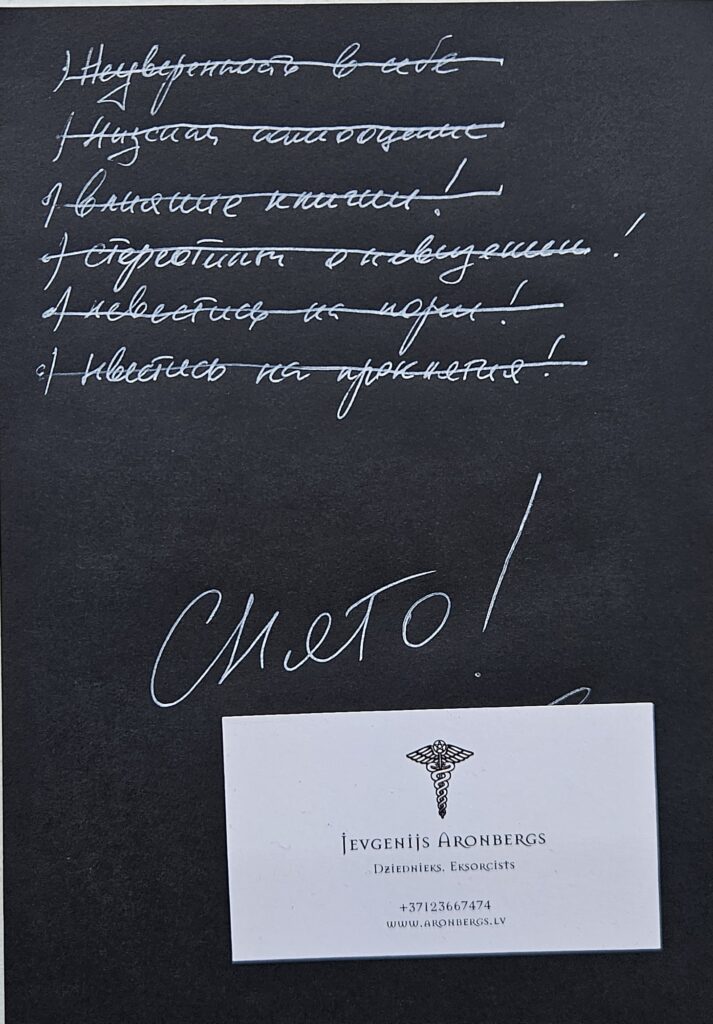 ) Неуверенность в себе
) Низкая самооценка
) влияние книги!
) стереотипы о невидении!
) невестись на порчи!
) невестись на проклятия!
Снято!
Jevgenijs Aronbergs
Dziednieks, Eksorcists
+37123667474
www.aronbergs.lv